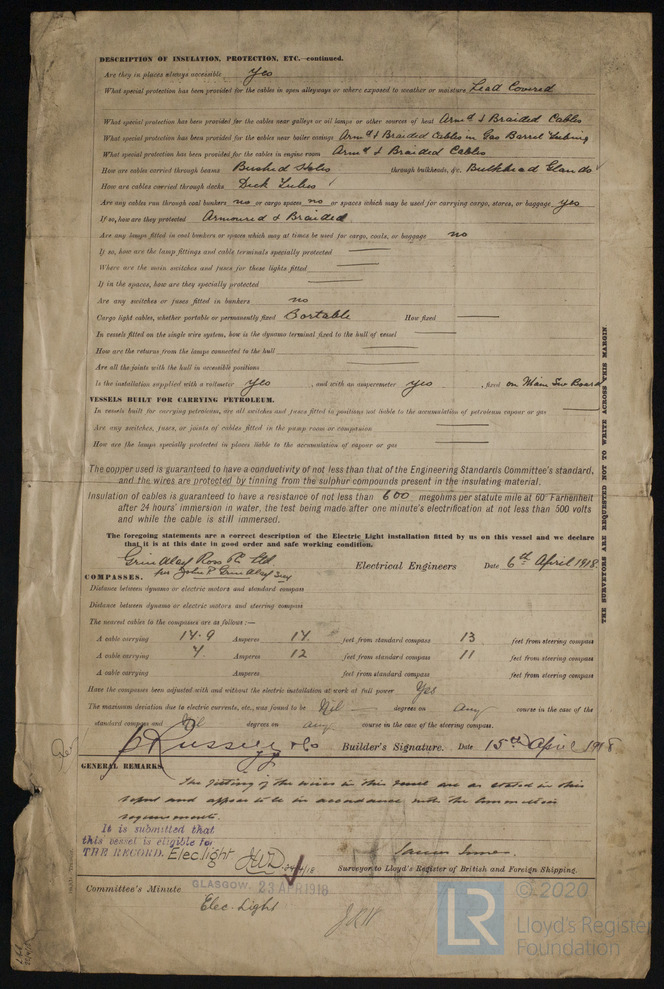 DESCRIPTION OF INSULATION, PROTECTION, ETC.—continued.
Are they in places always accessible yes
What special protection has been provided for the cables in open alleyways or where exposed to weather or moisture Lead Covered
What special protection has been provided for the cables near galleys or oil lamps or other sources of heat Armd & Braided Cables
What special protection has been provided for the cables near boiler casings Armd & Braided Cables in Gas Barrel Tubing
What special protection has been provided for the cables in engine room Armd & Braided Cables
How are cables carried through beams Bushed Holes through bulkheads, &c. Bulkhead Glands
How are cables carried through decks Deck Tubes
Are any cables run through coal bunkers no or cargo spaces no or spaces which may be used for carrying cargo, stores, or baggage yes
If so, how are they protected Armoured & Braided
Are any lamps fitted in coal bunkers or spaces which may at times be used for cargo, coals, or baggage no
If so, how are the lamp fittings and cable terminals specially protected
Where are the main switches and fuses for these lights fitted
If in the spaces, how are they specially protected
Are any switches or fuses fitted in bunkers no
Cargo light cables, whether portable or permanently fixed Portable How fixed
In vessels fitted on the single wire system, how is the dynamo terminal fixed to the hull of vessel
How are the returns from the lamps connected to the hull
Are all the joints with the hull in accessible positions
Is the installation supplied with a voltmeter yes , and with an amperemeter yes , fixed on Main Sw Board
VESSELS BUILT FOR CARRYING PETROLEUM.
In vessels built for carrying petroleum, are all switches and fuses fitted in positions not liable to the accumulation of petroleum vapour or gas
Are any switches, fuses, or joints of cables fitted in the pump room or companion
How are the lamps specially protected in places liable to the accumulation of vapour or gas
The copper used is guaranteed to have a conductivity of not less than that of the Engineering Standards Committee's standard,
and the wires are protected by tinning from the sulphur compounds present in the insulating material.
Insulation of cables is guaranteed to have a resistance of not less than 600 megohms per statute mile at 60° Farhenheit
after 24 hours' immersion in water, the test being made after one minute's electrification at not less than 500 volts
and while the cable is still immersed.
The foregoing statements are a correct description of the Electric Light installation fitted by us on this vessel and we declare
that it is at this date in good order and safe working condition.
Ross Ltd Electrical Engineers Date 6th April 1918
COMPASSES.
Distance between dynamo or electric motors and standard compass
Distance between dynamo or electric motors and steering compass
The nearest cables to the compasses are as follows:—
A cable carrying 14.9 Amperes 14 feet from standard compass 13 feet from steering compass
A cable carrying 7. Amperes 12 feet from standard compass 11 feet from steering compass
A cable carrying Amperes feet from standard compass feet from steering compass
Have the compasses been adjusted with and without the electric installation at work at full power Yes
The maximum deviation due to electric currents, etc., was found to be Nil degrees on any course in the case of the
standard compass and Nil degrees on any course in the case of the steering compass.
Russell & Co Builder's Signature. Date 15th April 1918
GENERAL REMARKS.
The fitting of the wires in this vessel are as stated in this
report and appear to be in accordance with the
requirements.
It is submitted that
this vessel is eligible for
THE RECORD. Elec. light
Surveyor to Lloyd's Register of British and Foreign Shipping.
Committee's Minute GLASGOW. 23 APR 1918
Elec. Light
THE SURVEYORS ARE REQUESTED NOT TO WRITE ACROSS THIS MARGIN
LR
© 2020
Lloyd's Register
Foundation